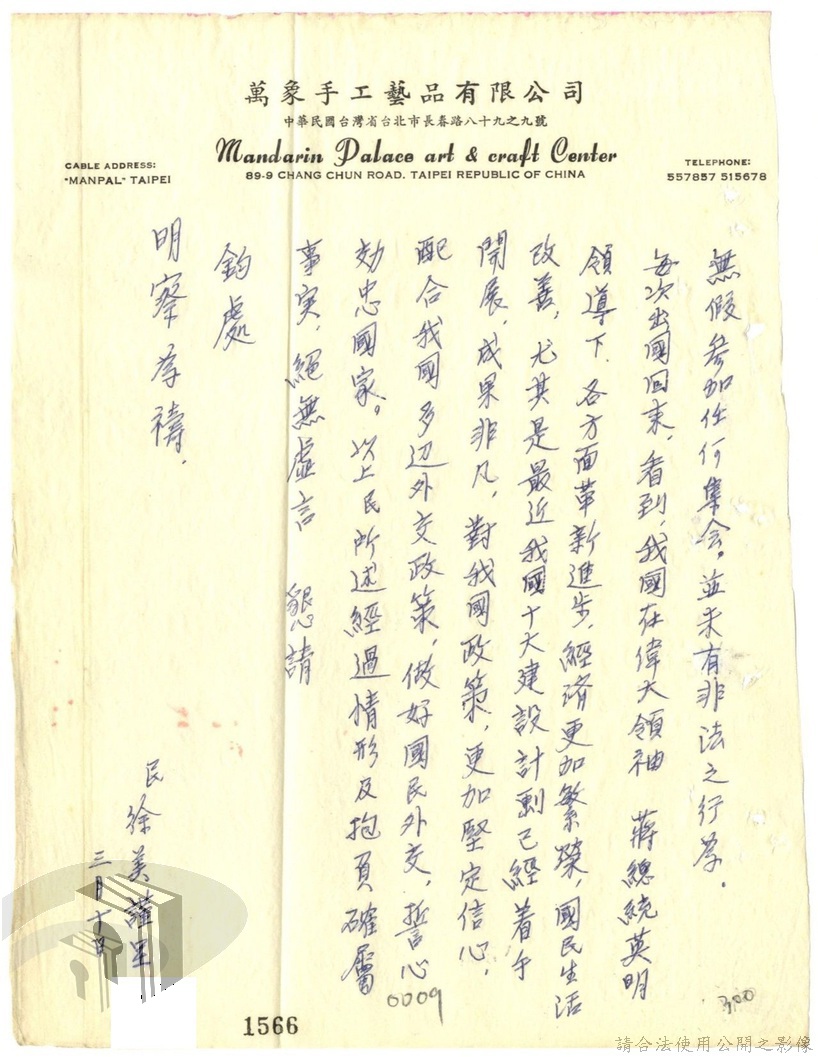 萬象手工藝品有限公司
中華民國台灣省台北市長春路八十九之九號
Mandarin Palace art & craft Center
89-9 CHANG CHUN ROAD. TAIPEI REPUBLIC OF CHINA
CABLE ADDRESS:
"MANPAL" TAIPEI
TELEPHONE:
557857 515678
無假參加任何集会，並未有非法之行為．
每次出國回來，看到，我國在偉大領袖 蔣總統英明
領導下．各方面革新進步，經済更加繁榮，國民生活
改善，尤其是最近我國十大建設計劃已經着手
開展，成果非凡，對我國政策，更加堅定信心，
配合我國多边外交政策，做好國民外交，誓心
効忠國家。以上民所述經過情形及抱負確屬
事实，絕無虛言 懇請
鈞處
明察為禱．
民徐美謹呈
三月十日
0009
300
1566
請合法使用公開之影像